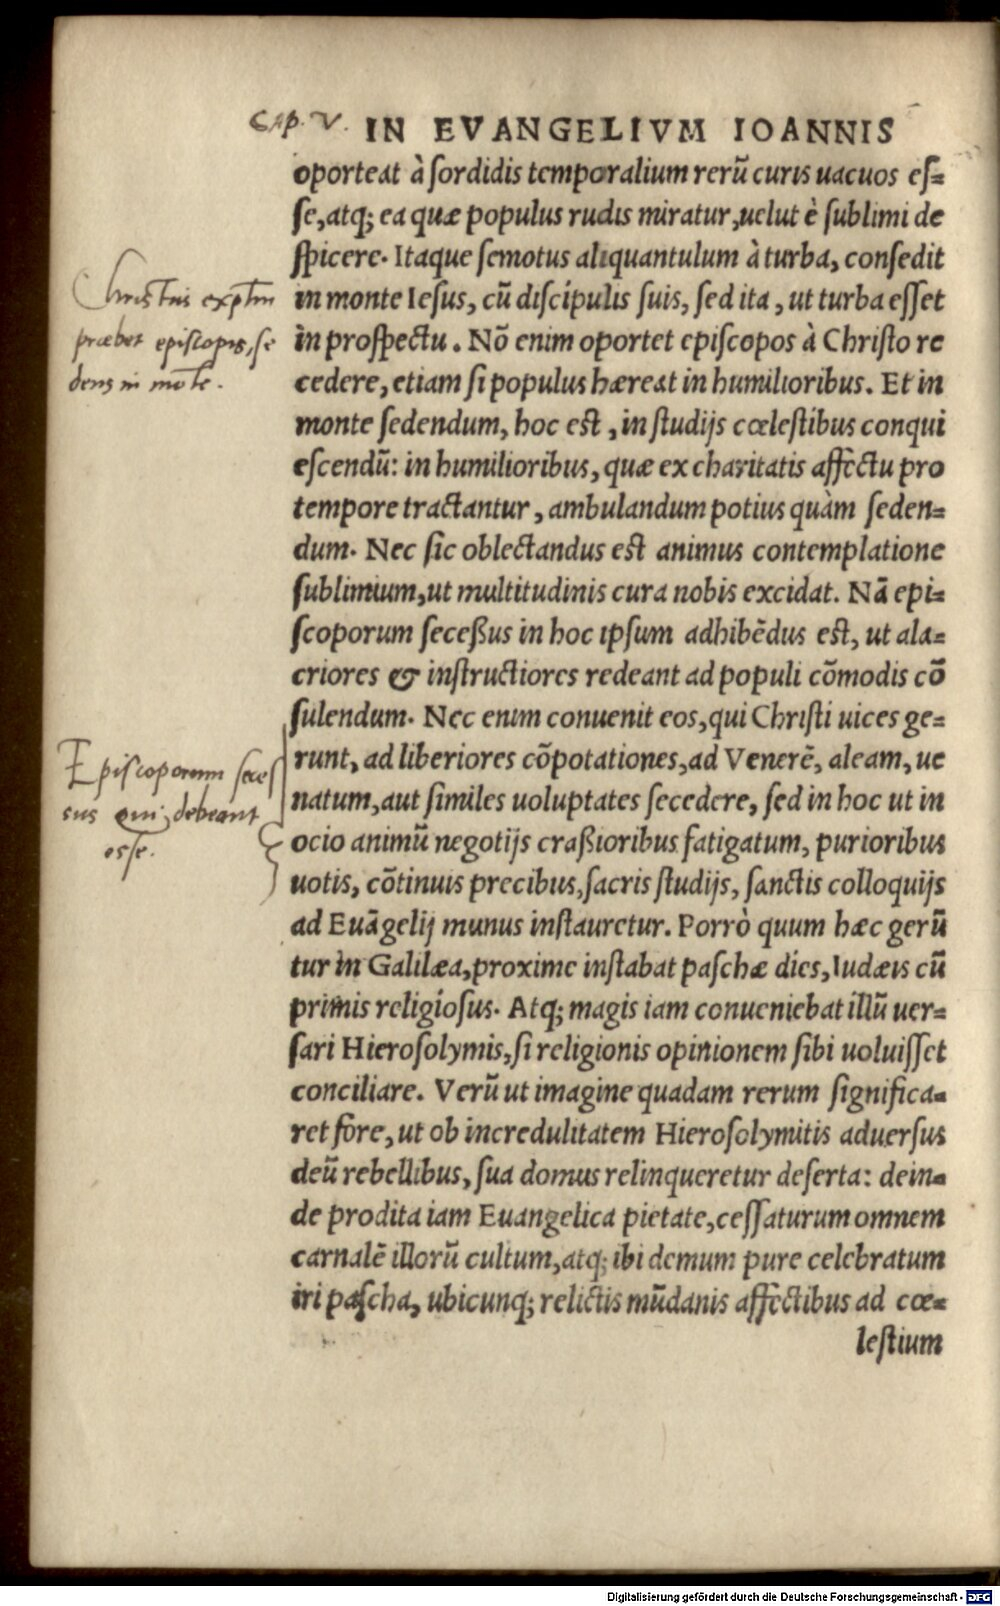 CAP. V. IN EVANGELIVM IOANNIS
oporteat à ſordidis temporalium rerũ curis uacuos eſ=
ſe, atq; ea quæ populus rudis miratur, uelut è ſublimi de
ſpicere. Itaque ſemotus aliquantulum à turba, conſedit
in monte Ieſus, cũ diſcipulis ſuis, ſed ita, ut turba eſſet
in proſpectu. Nõ enim oportet epiſcopos à Chriſto re
cedere, etiam ſi populus hæreat in humilioribus. Et in
monte ſedendum, hoc eſt, in ſtudijs cœleſtibus conqui
eſcendũ: in humilioribus, quæ ex charitatis affectu pro
tempore tractantur, ambulandum potius quàm ſeden=
dum. Nec ſic oblectandus eſt animus contemplatione
ſublimium, ut multitudinis cura nobis excidat. Nã epi=
ſcoporum ſeceßus in hoc ipſum adhibẽdus eſt, ut ala=
criores & inſtructiores redeant ad populi cõmodis cõ
ſulendum. Nec enim conuenit eos, qui Chriſti uices ge=
runt, ad liberiores cõpotationes, ad Venerẽ, aleam, ue
natum, aut ſimiles uoluptates ſecedere, ſed in hoc ut in
ocio animũ negotijs craßioribus fatigatum, purioribus
uotis, cõtinuis precibus, ſacris ſtudijs, ſanctis colloquijs
ad Euãgelij munus inſtauretur. Porrò quum hæc gerũ
tur in Galilæa, proxime inſtabat paſchæ dies, Iudæis cũ
primis religioſus. Atq; magis iam conueniebat illũ uer=
ſari Hieroſolymis, ſi religionis opinionem ſibi uoluiſſet
conciliare. Verũ ut imagine quadam rerum ſignifica=
ret fore, ut ob incredulitatem Hieroſolymitis aduerſus
deũ rebellibus, ſua domus relinqueretur deſerta: dein=
de prodita iam Euangelica pietate, ceſſaturum omnem
carnalẽ illorũ cultum, atq; ibi demum pure celebratum
iri paſcha, ubicunq; relictis mũdanis affectibus ad cœ=
leſtium
Christus
præbet episcopis, se
dens in mõte.
Episcoporum seces
sus qui debeant
esse.
Digitalisierung gefördert durch die Deutsche Forschungsgemeinschaft - DFG